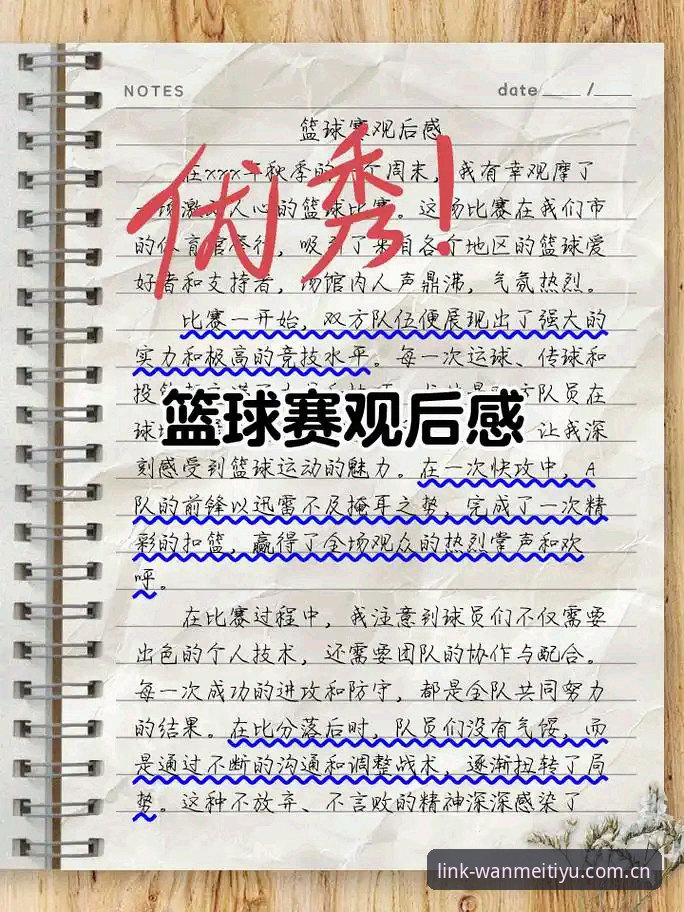 NOTES
date ___ /___
篮球赛观后感
在xxx年秋季的一个周末，我有幸观摩了
优秀！
一场激动人心的篮球比赛。这场比赛在我们市
的体育馆举行，吸引了来自各个地区的篮球爱
好者和支持者，场馆内人声鼎沸，气氛热烈。
比赛一开始，双方队伍便展现出了强大的
实力和极高的竞技水平。每一次运球、传球和
队员在
篮球赛观后感
让我深
刻感受到篮球运动的魅力。在一次快攻中，A
队的前锋以迅雷不及掩耳之势，完成了一次精
彩的扣篮，赢得了全场观众的热烈掌声和欢
呼。
在比赛过程中，我注意到球员们不仅需要
出色的个人技术，还需要团队的协作与配合。
每一次成功的进攻和防守，都是全队共同努力
的结果。在比分落后时，队员们没有气馁，而
是通过不断的沟通和调整战术，逐渐扭转了局
势。这种不放弃、不言败的精神深深感染了
link-wanmeitiyu.com.cn